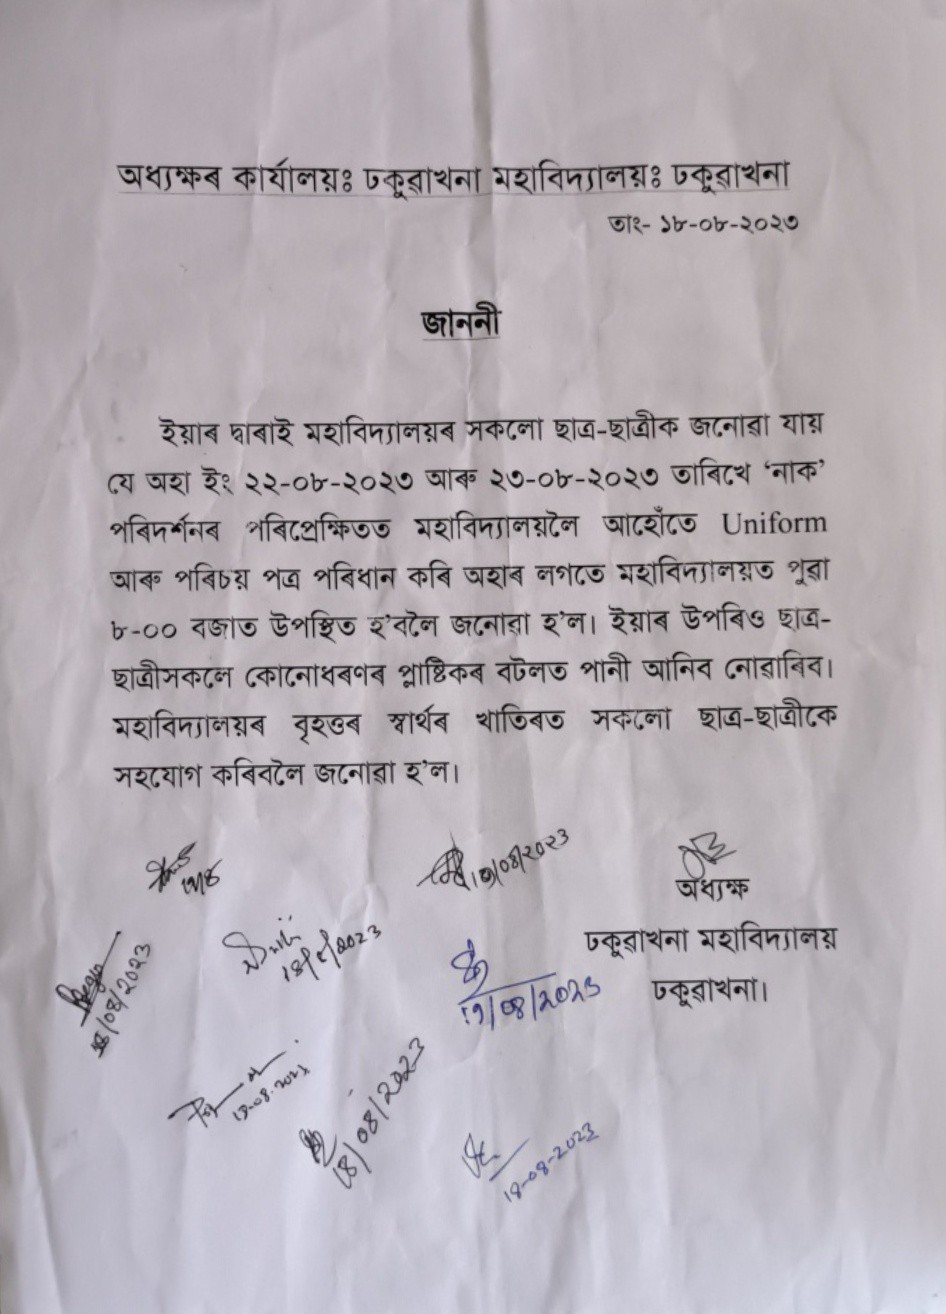 অধ্যক্ষৰ কাৰ্যালয়ঃ ঢকুৱাখনা মহাবিদ্যালয়ঃ ঢকুৱাখনা
তাং- ১৮-০৮-২০২৩
জাননী
ইয়াৰ দ্বাৰাই মহাবিদ্যালয়ৰ সকলো ছাত্ৰ-ছাত্ৰীক জনোৱা যায়
যে অহা ইং ২২-০৮-২০২৩ আৰু ২৩-০৮-২০২৩ তাৰিখে ‘নাক’
পৰিদৰ্শনৰ পৰিপ্ৰেক্ষিতত মহাবিদ্যালয়লৈ আহোঁতে Uniform
আৰু পৰিচয় পত্ৰ পৰিধান কৰি অহাৰ লগতে মহাবিদ্যালয়ত পুৱা
৮-০০ বজাত উপস্থিত হ’বলৈ জনোৱা হ’ল। ইয়াৰ উপৰিও ছাত্ৰ-
ছাত্ৰীসকলে কোনোধৰণৰ প্লাষ্টিকৰ বটলত পানী আনিব নোৱাৰিব।
মহাবিদ্যালয়ৰ বৃহত্তৰ স্বাৰ্থৰ খাতিৰত সকলো ছাত্ৰ-ছাত্ৰীকে
সহযোগ কৰিবলৈ জনোৱা হ’ল।
অধ্যক্ষ
ঢকুৱাখনা মহাবিদ্যালয়
ঢকুৱাখনা।
18/08/2023
18/8/2023
19/08/2023
18/08/2023
18-08-2023